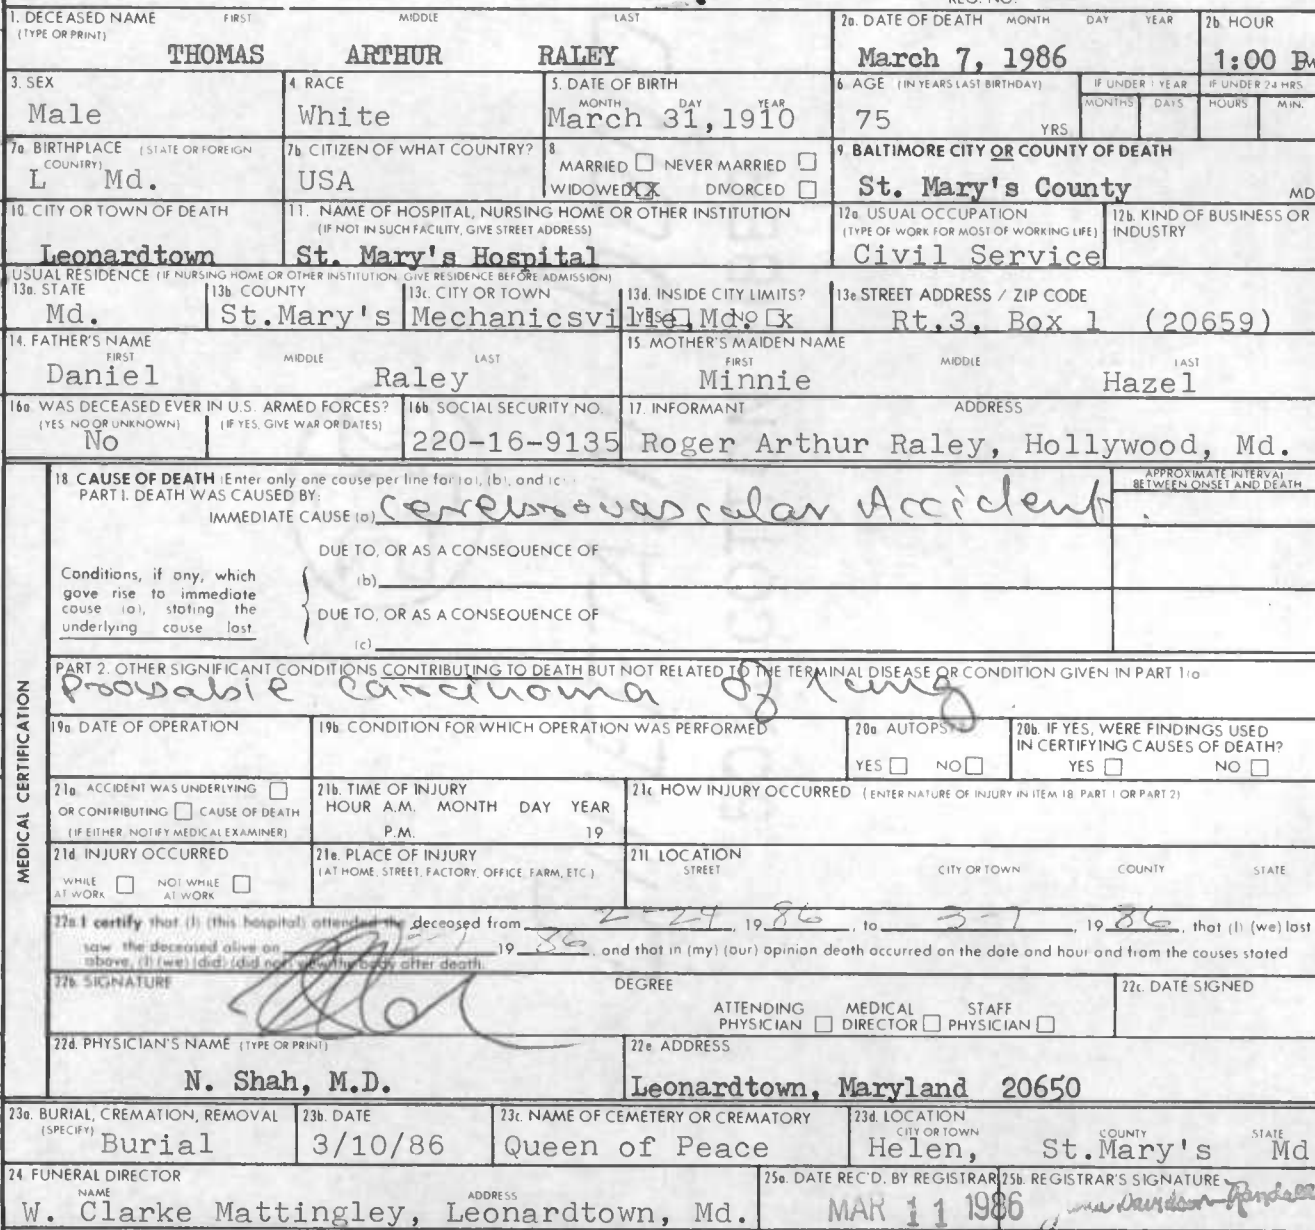 1. DECEASED NAME FIRST MIDDLE LAST
(TYPE OR PRINT)
THOMAS ARTHUR RALEY
2a. DATE OF DEATH MONTH DAY YEAR
March 7, 1986
2b HOUR
1:00 PM
3. SEX
Male
4 RACE
White
5. DATE OF BIRTH
MONTH DAY YEAR
March 31, 1910
6 AGE (IN YEARS LAST BIRTHDAY)
75 YRS
IF UNDER 1 YEAR
MONTHS DAYS
IF UNDER 24 HRS.
HOURS MIN.
7a BIRTHPLACE (STATE OR FOREIGN
COUNTRY)
L Md.
7b CITIZEN OF WHAT COUNTRY?
USA
8
MARRIED NEVER MARRIED
WIDOWED XX DIVORCED
9. BALTIMORE CITY OR COUNTY OF DEATH
St. Mary's County MD
10. CITY OR TOWN OF DEATH
Leonardtown
11. NAME OF HOSPITAL, NURSING HOME OR OTHER INSTITUTION
(IF NOT IN SUCH FACILITY, GIVE STREET ADDRESS)
St. Mary's Hospital
12a. USUAL OCCUPATION
(TYPE OF WORK FOR MOST OF WORKING LIFE)
Civil Service
12b. KIND OF BUSINESS OR
INDUSTRY
USUAL RESIDENCE (IF NURSING HOME OR OTHER INSTITUTION GIVE RESIDENCE BEFORE ADMISSION)
13a. STATE
Md.
13b COUNTY
St.Mary's
13c. CITY OR TOWN
13d. INSIDE CITY LIMITS?
YES NO x
Mechanicsville, Md.
13e STREET ADDRESS / ZIP CODE
Rt.3, Box 1 (20659)
14. FATHER'S NAME
FIRST MIDDLE LAST
Daniel Raley
15 MOTHER'S MAIDEN NAME
FIRST MIDDLE LAST
Minnie Hazel
16a WAS DECEASED EVER IN U.S. ARMED FORCES?
(YES NO OR UNKNOWN) (IF YES, GIVE WAR OR DATES)
No
16b SOCIAL SECURITY NO.
220-16-9135
17. INFORMANT ADDRESS
Roger Arthur Raley, Hollywood, Md.
MEDICAL CERTIFICATION
18 CAUSE OF DEATH (Enter only one cause per line for (a), (b), and (c).
APPROXIMATE INTERVAL
BETWEEN ONSET AND DEATH
PART 1. DEATH WAS CAUSED BY:
IMMEDIATE CAUSE (a) Cerebrovascular Accident
DUE TO, OR AS A CONSEQUENCE OF
(b)
Conditions, if any, which
gave rise to immediate
cause (a), stating the
underlying cause last.
DUE TO, OR AS A CONSEQUENCE OF
(c)
PART 2. OTHER SIGNIFICANT CONDITIONS CONTRIBUTING TO DEATH BUT NOT RELATED TO THE TERMINAL DISEASE OR CONDITION GIVEN IN PART 1(a
Probable Carcinoma of Lung
19a DATE OF OPERATION
19b. CONDITION FOR WHICH OPERATION WAS PERFORMED
20a AUTOPSY?
YES NO
20b. IF YES, WERE FINDINGS USED
IN CERTIFYING CAUSES OF DEATH?
YES NO
21a ACCIDENT WAS UNDERLYING
OR CONTRIBUTING CAUSE OF DEATH
(IF EITHER, NOTIFY MEDICAL EXAMINER)
21b. TIME OF INJURY
HOUR A.M. MONTH DAY YEAR
P.M. 19
21c HOW INJURY OCCURRED (ENTER NATURE OF INJURY IN ITEM 18 PART 1 OR PART 2)
21d INJURY OCCURRED
WHILE AT WORK NOT WHILE AT WORK
21e. PLACE OF INJURY
(AT HOME, STREET, FACTORY, OFFICE, FARM, ETC.)
21f LOCATION
STREET CITY OR TOWN COUNTY STATE
22a I certify that (I) (this hospital) attended the deceased from 2-24, 1986, to 3-7, 1986, that (I) (we) last
saw the deceased alive on 1986, and that in (my) (our) opinion death occurred on the date and hour and from the causes stated
above, (I) (we) (did) (did not) view the body after death.
22b. SIGNATURE DEGREE
ATTENDING PHYSICIAN MEDICAL DIRECTOR STAFF PHYSICIAN
22c. DATE SIGNED
22d. PHYSICIAN'S NAME (TYPE OR PRINT)
N. Shah, M.D.
22e ADDRESS
Leonardtown, Maryland 20650
23a. BURIAL, CREMATION, REMOVAL
(SPECIFY)
Burial
23b. DATE
3/10/86
23c. NAME OF CEMETERY OR CREMATORY
Queen of Peace
23d. LOCATION
CITY OR TOWN COUNTY STATE
Helen, St.Mary's Md
24 FUNERAL DIRECTOR
NAME ADDRESS
W. Clarke Mattingley, Leonardtown, Md.
25a. DATE REC'D. BY REGISTRAR
MAR 11 1986
25b. REGISTRAR'S SIGNATURE
Davidson-Randall